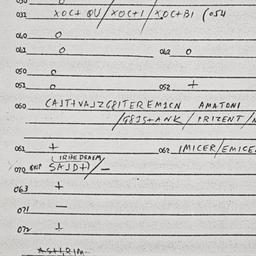 031 XOC+ QU/XOC+I/XOC+BI (054
040 O
041 O 042 O
050 O
051 O 052 +
060 (AJT+VAJZG8ITEREMICN AMATONI
/G8JS+ANK/PRIZENT/
061 + 062 IMICER/EMICE
(IRIHEDRAEM
070 SAJD+)/—
063 +
071 —
072 +